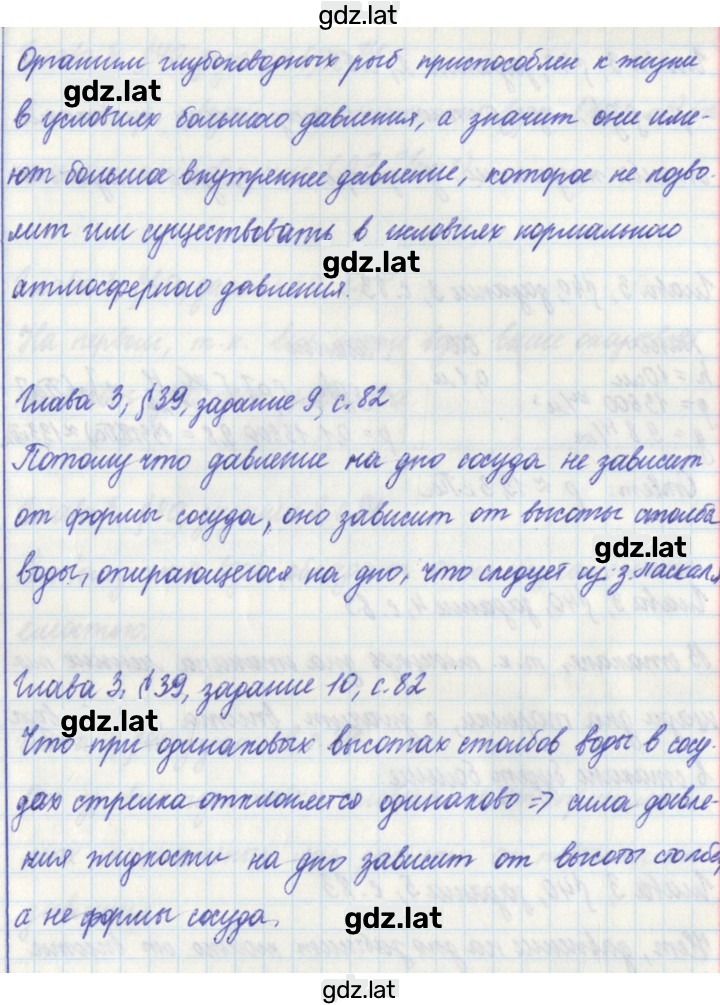 gdz.lat
Организм глубоководных рыб приспособлен к жизни
gdz.lat
в условиях большого давления, а значит они име-
ют большое внутреннее давление, которое не позво-
лит им существовать в условиях нормального
gdz.lat
атмосферного давления.
Глава 3, §39, задание 9, с.82
Потому что давление на дно сосуда не зависит
от формы сосуда, оно зависит от высоты столба
gdz.lat
воды, опирающегося на дно, что следует из з.Паскаля
Глава 3, §39, задание 10, с.82
gdz.lat
Что при одинаковых высотах столбов воды в сосу-
дах стрелка отклоняется одинаково => сила давле-
ния жидкости на дно зависит от высоты столба,
а не формы сосуда.
gdz.lat
gdz.lat